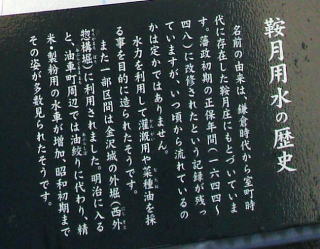 鞍月用水の歴史
名前の由来は、鎌倉時代から室町時
代に存在した鞍月庄にもとづいていま
す。藩政初期の正保年間(一六四四〜
四八)に改修されたという記録が残っ
ていますが、いつ頃から流れているの
かは定かではありません。
水力を利用して灌漑用や菜種油を採
る事を目的に造られたそうです。
また一部区間は金沢城の外堀(西外
惣構堀)に利用されました。明治に入る
と、油車町周辺では油絞りに代わり、精
米・製粉用の水車が増加、昭和初期まで
その姿が多数見られたそうです。